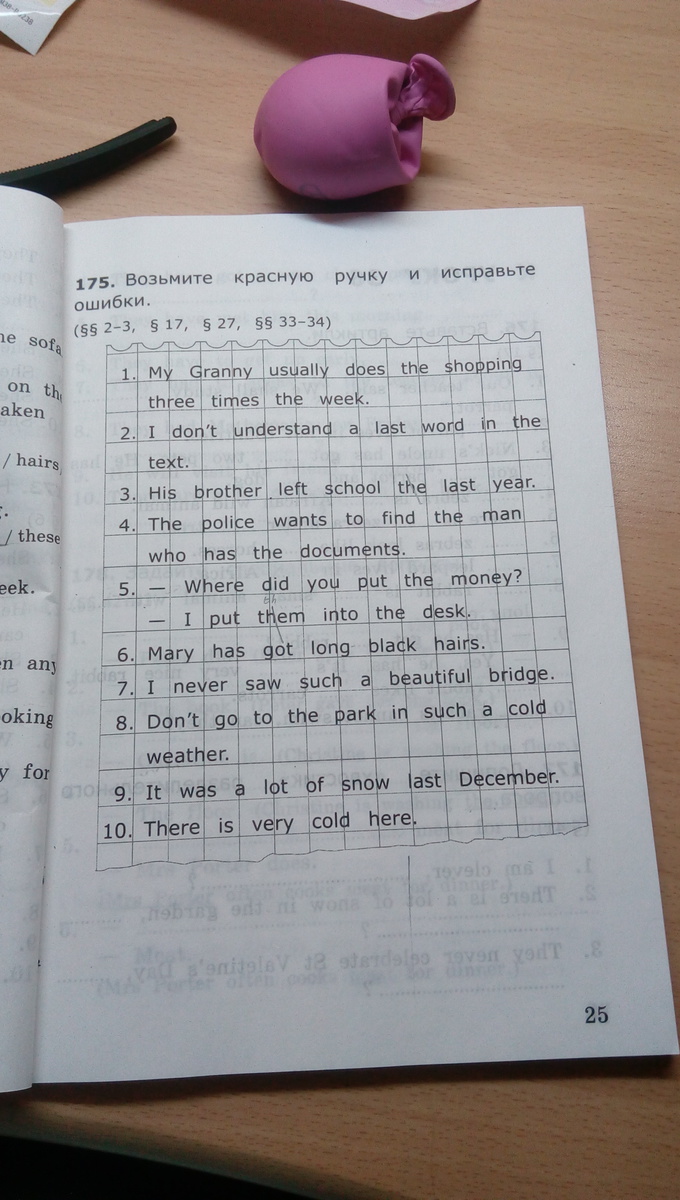 175. Возьмите красную ручку и исправьте
ошибки.
(§§ 2–3, § 17, § 27, §§ 33–34)
1. My Granny usually does the shopping
three times the week.
2. I don't understand a last word in the
text.
3. His brother left school the last year.
4. The police wants to find the man
who has the documents.
5. — Where did you put the money?
— I put them into the desk.
6. Mary has got long black hairs.
7. I never saw such a beautiful bridge.
8. Don't go to the park in such a cold
weather.
9. It was a lot of snow last December.
10. There is very cold here.
25
on the
aken
/ hairs
/ these
eek.
en any
ooking
y for